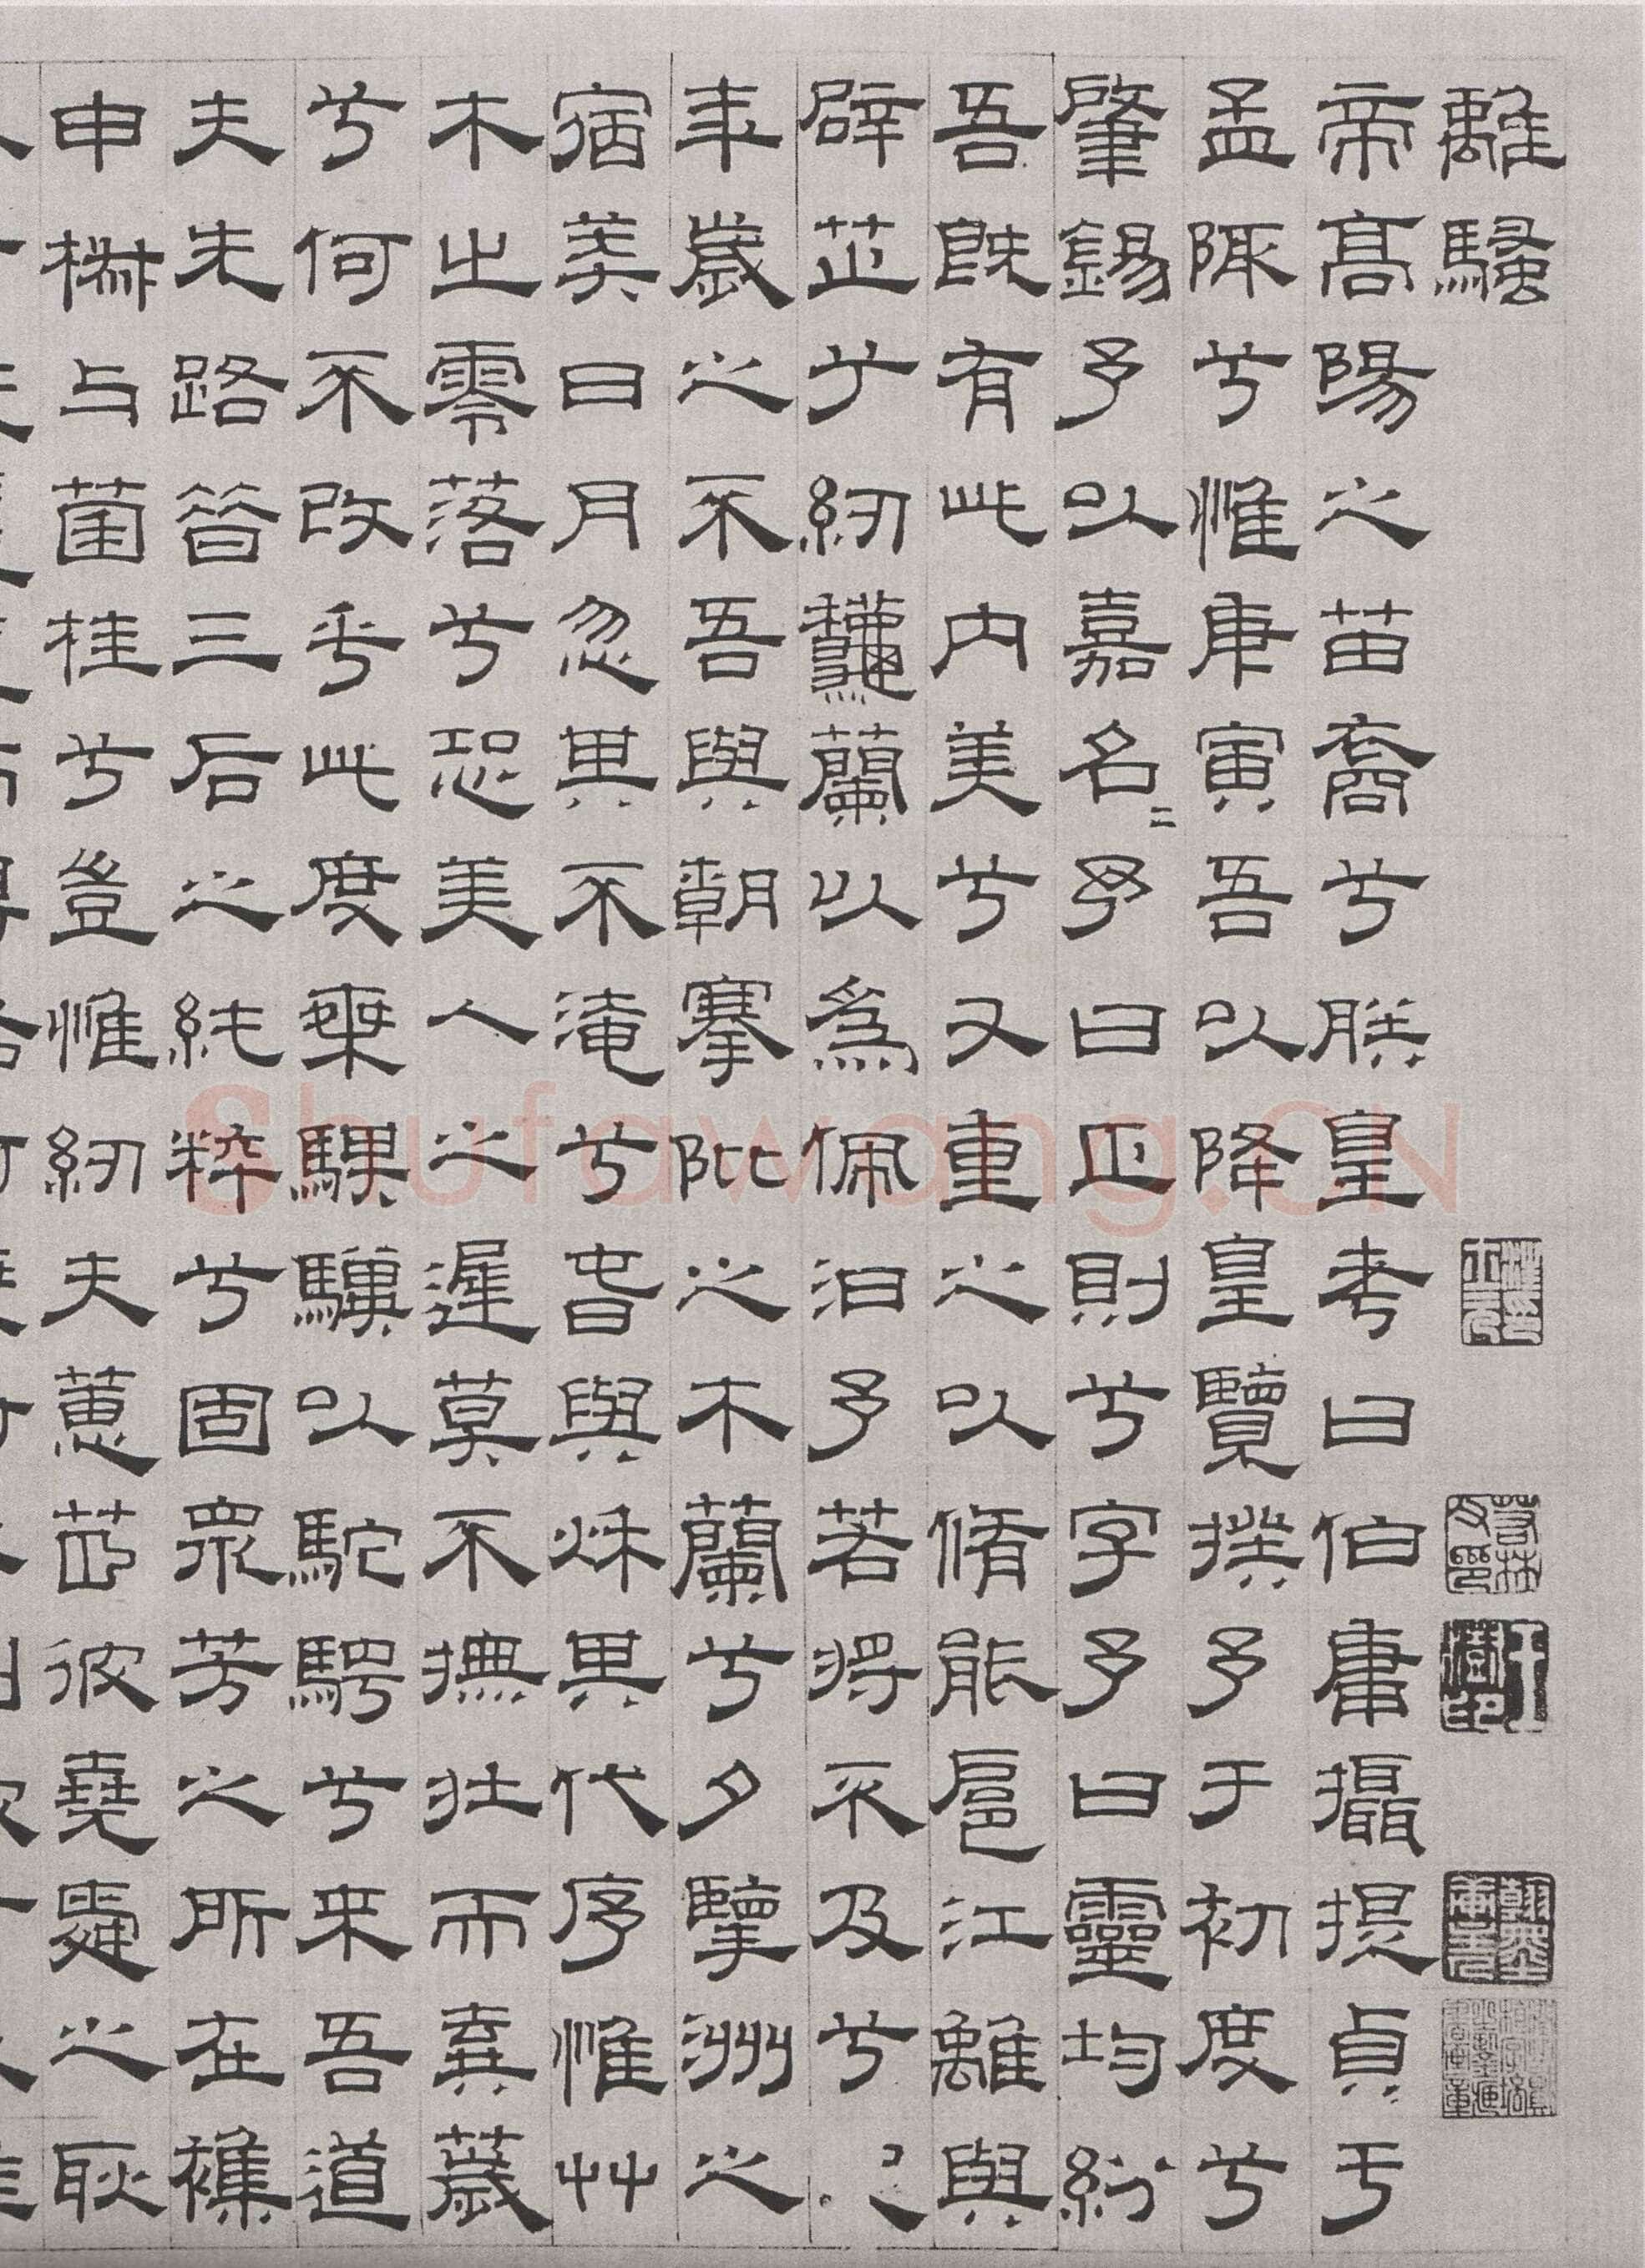 離騷
帝高陽之苗裔兮朕皇考曰伯庸攝提貞于
孟陬兮惟庚寅吾以降皇覽揆予于初度兮
肇錫予以嘉名二予曰正則兮字予曰靈均紛
吾既有此內美兮又重之以脩能扈江離與
辟芷兮紉龝蘭以為佩汩予若將不及兮
年歲之不吾與朝搴阰之木蘭兮夕擥洲之
宿莽日月忽其不淹兮旾與秌其代序惟艸
木之零落兮恐美人之遲莫不撫壯而棄薉
兮何不改乎此度椉騏驥以駝騁兮來吾道
夫先路昔三后之純粹兮固眾芳之所在襍
申椒与菌桂兮豈惟紉夫蕙茝彼堯舜之耿
Shufawang.CN